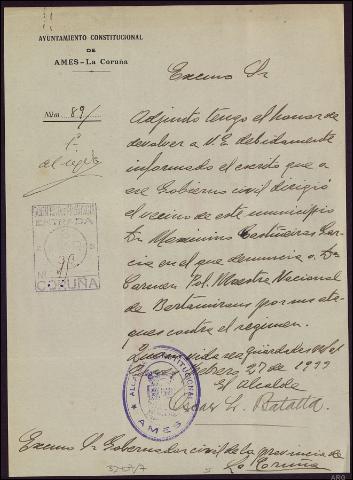 AYUNTAMIENTO CONSTITUCIONAL
DE
AMES-La Coruña
Núm. 89/
Excmo Sr
Adjunto tengo el honor de
devolver a V.E. debidamente
informado el escrito que a
ese Gobierno civil dirigió
el vecino de este municipio
Dn Maximino Castiñeiras Gar-
cia en el que denuncia a Dª
Carmen Pol. Maestra Nacional
de Bertamirans por sus ata-
ques contra el regimen.
ENTRADA
CORUÑA
vida sea guardada
Febrero 27 de 19
El Alcalde
Oscar L. Batalla.
ALCALDIA CONSTITUCIONAL
AMES
Excmo Sr Gobernador civil de la provincia de
La Coruña